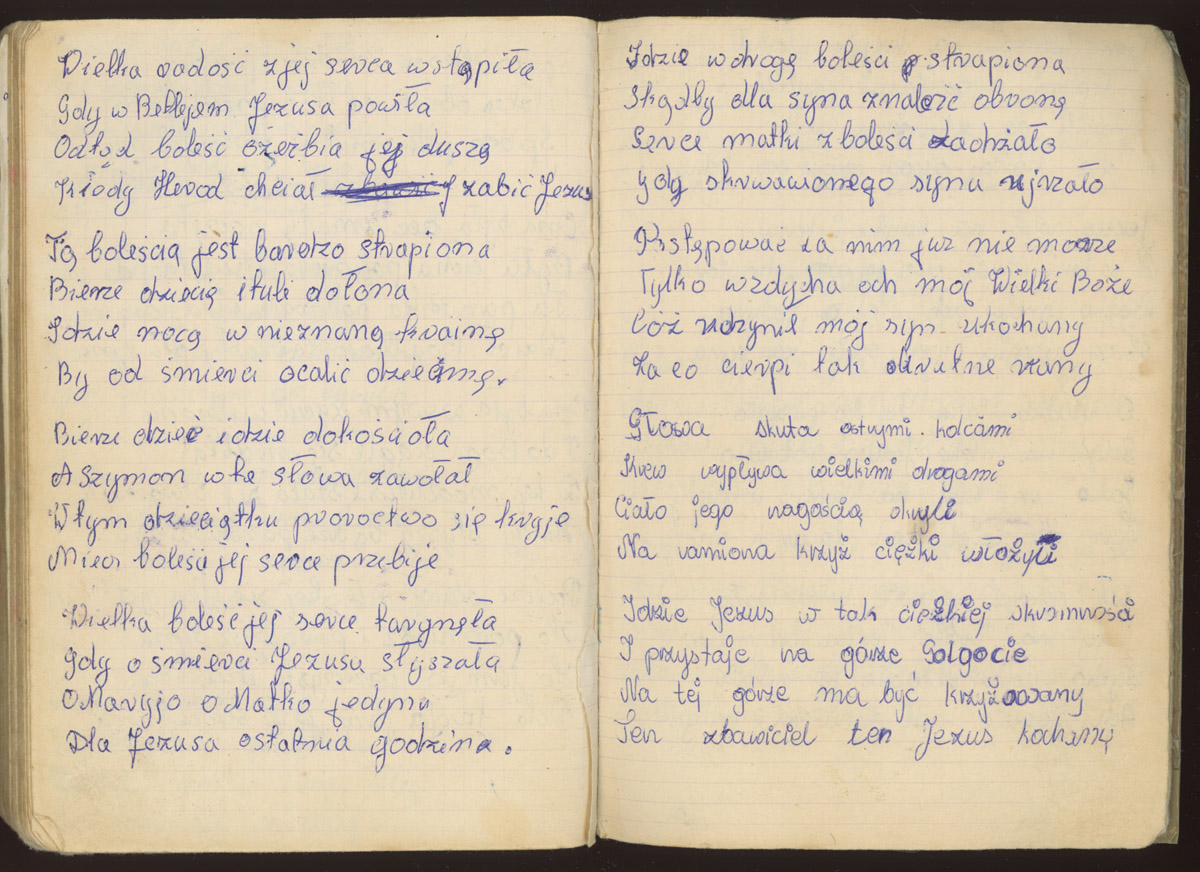 Wielka radość z jej serca wstąpiła
Gdy w Betlejem Jezusa powiła
Odtąd boleść oziębia jej duszę
Kiedy Herod chciał zabić Jezus
Tą boleścią jest bardzo strapiona
Bierze dziecię i tuli dołona
Idzie nocą w nieznaną krainę
By od śmierci ocalić dziecinę.
Bierze dzieć idzie dokościoła
A Szymon w te słowa zawołał
W tym dzieciątku proroctwo się kryje
Miecz boleści jej serce przebije
Wielka boleść jej serce targnęła
Gdy o śmierci Jezusa słyszała
O Maryjo o Matko jedyna
Dla Jezusa ostatnia godzina.
Idzie w drogę boleści strapiona
Skądby dla syna znaleźć obronę
Serce matki z boleści zadrżało
gdy skrwawionego syna ujrzało
Postępować za nim już nie może
Tylko wzdycha och mój Wielki Boże
Cóż uczynił mój syn ukochany
Za co cierpi tak okrutne rany
Głowa skuta ostrymi kolcami
Krew wypływa wielkimi drogami
Ciało jego nagością okryli
Na ramiona krzyż ciężki włożyli
Idzie Jezus w tak ciężkiej
I przystaje na górze Golgocie
Na tej górze ma być krzyżowany
Ten zbawiciel ten Jezus kochany